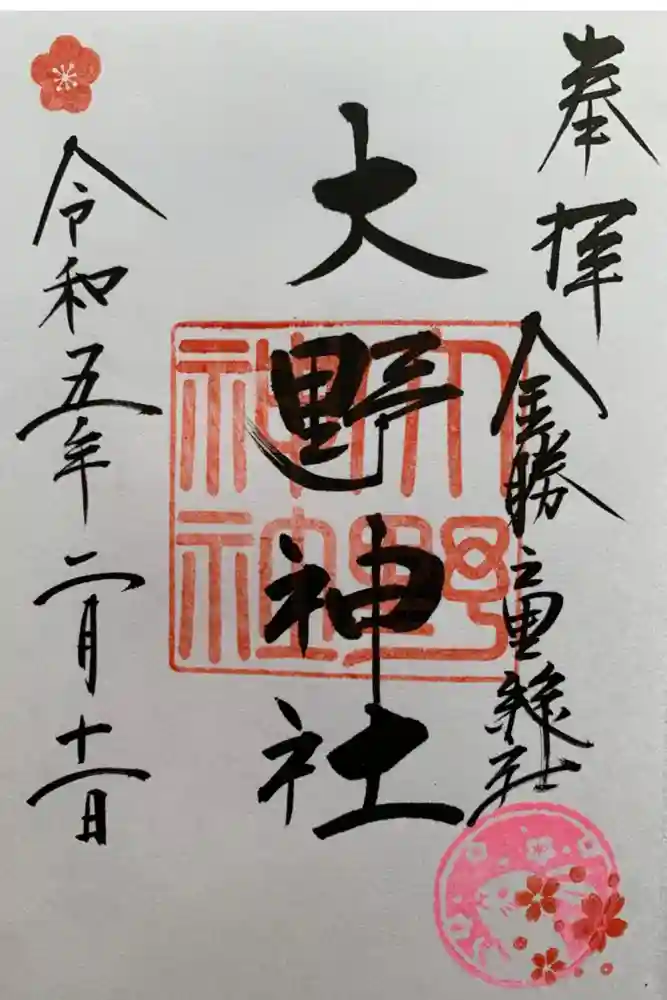 奉拝
金勝之里総社
大野神社
大野
神社
令和五年二月十一日